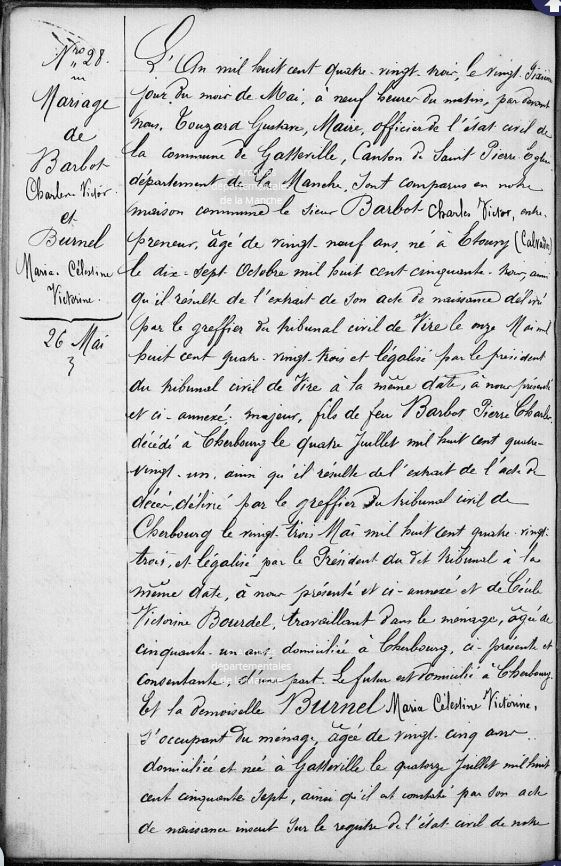 Nro 28.
Mariage
de
Barbot
Charles Victor.
et
Burnel
Maria Célestine
Victorine.
26 Mai
L'An mil huit cent quatre-vingt-trois, le vingt-sixième
jour du mois de Mai, à neuf heures du matin, par devant
nous, Touzard Gustave, Maire, officier de l'état civil de
la commune de Gatteville, Canton de Saint Pierre Eglise
département de la Manche, sont comparus en notre
maison commune le sieur Barbot Charles Victor, entre-
preneur, âgé de vingt-neuf ans, né à Etouvy (Calvados)
le dix-sept Octobre mil huit cent cinquante-trois, ainsi
qu'il résulte de l'extrait de son acte de naissance délivré
par le greffier du tribunal civil de Vire le onze Mai mil
huit cent quatre-vingt-trois et légalisé par le président
du tribunal civil de Vire à la même date, à nous présenté
et ci-annexé. majeur, fils de feu Barbot Pierre Charles
décédé à Cherbourg le quatre Juillet mil huit cent quatre-
vingt-un, ainsi qu'il résulte de l'extrait de l'acte de
décès, délivré par le greffier du tribunal civil de
Cherbourg le vingt-trois Mai mil huit cent quatre-vingt-
trois, et légalisé par le Président du dit tribunal à la
même date, à nous présenté et ci-annexé et de Cécile
Victorine Bourdel, travaillant dans le ménage, âgée de
cinquante-un ans, domiciliée à Cherbourg, ci-présente et
consentante, d'une part. Le futur est domicilié à Cherbourg.
Et la demoiselle Burnel Maria Célestine Victorine,
s'occupant du ménage, âgée de vingt-cinq ans
domiciliée et née à Gatteville le quatorze Juillet mil huit
cent cinquante sept, ainsi qu'il est constaté par son acte
de naissance inscrit sur le registre de l'état civil de notre
© Archives
départementales
de la Manche
départementales